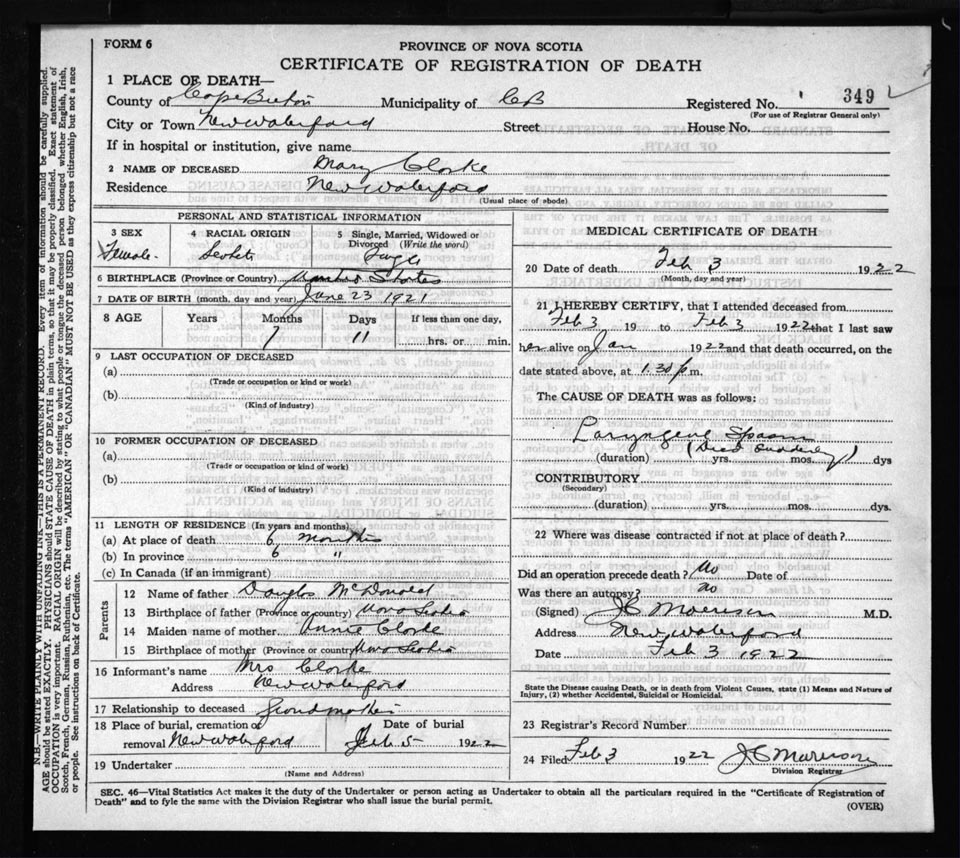 FORM 6
PROVINCE OF NOVA SCOTIA
CERTIFICATE OF REGISTRATION OF DEATH
1 PLACE OF DEATH—
County of Cape Breton Municipality of CB Registered No. 349
(For use of Registrar General only)
City or Town New Waterford Street House No.
If in hospital or institution, give name
2 NAME OF DECEASED Mary Clorke
Residence New Waterford
(Usual place of abode)
PERSONAL AND STATISTICAL INFORMATION
3 SEX 4 RACIAL ORIGIN 5 Single, Married, Widowed or Divorced (Write the word)
Female Scotch Single
6 BIRTHPLACE (Province or Country) United States
7 DATE OF BIRTH (month, day and year) June 23 1921
8 AGE Years Months Days If less than one day,
7 11 hrs. or min.
9 LAST OCCUPATION OF DECEASED
(a)
(Trade or occupation or kind or work)
(b)
(Kind of industry)
10 FORMER OCCUPATION OF DECEASED
(a)
(Trade or occupation or kind or work)
(b)
(Kind of industry)
11 LENGTH OF RESIDENCE (In years and months)
(a) At place of death 6 months
(b) In province 6 "
(c) In Canada (if an immigrant)
Parents
12 Name of father Douglas McDonald
13 Birthplace of father (Province or country) Nova Scotia
14 Maiden name of mother Annie Clorke
15 Birthplace of mother (Province or country) Nova Scotia
16 Informant's name Mrs Clorke
Address New Waterford
17 Relationship to deceased Grandmother
18 Place of burial, cremation or removal New Waterford Date of burial Feb 5 1922
19 Undertaker
(Name and Address)
MEDICAL CERTIFICATE OF DEATH
20 Date of death Feb 3 1922
(Month, day and year)
21 I HEREBY CERTIFY, that I attended deceased from
Feb 3 19 to Feb 3 1922 that I last saw
her alive on Jan 1922 and that death occurred, on the
date stated above, at 1.30 p.m.
The CAUSE OF DEATH was as follows:
Laryngeal Spasm
(Died suddenly)
(duration) yrs. mos. dys
CONTRIBUTORY
(Secondary)
(duration) yrs. mos. dys.
22 Where was disease contracted if not at place of death?
Did an operation precede death? No Date of
Was there an autopsy? no
(Signed) M.D.
Address New Waterford
Date Feb 3 1922
State the Disease causing Death, or in death from Violent Causes, state (1) Means and Nature of
Injury, (2) whether Accidental, Suicidal or Homicidal.
23 Registrar's Record Number
24 Filed Feb 3 1922
Division Registrar
SEC. 46—Vital Statistics Act makes it the duty of the Undertaker or person acting as Undertaker to obtain all the particulars required in the "Certificate of Registration of
Death" and to fyle the same with the Division Registrar who shall issue the burial permit.
(OVER)
N.B.—WRITE PLAINLY WITH UNFADING INK—THIS IS A PERMANENT RECORD. Every item of information should be carefully supplied.
AGE should be stated EXACTLY. PHYSICIANS should STATE CAUSE OF DEATH in plain terms, so that it may be properly classified. Exact statement of
OCCUPATION is very important. RACIAL ORIGIN will be described by stating to what people or tongue the deceased person belonged whether English, Irish,
Scotch, French, German, Russian, Ruthenian, etc. The terms "AMERICAN" OR "CANADIAN" MUST NOT BE USED as they express citizenship but not a race
or people. See instructions on back of Certificate.